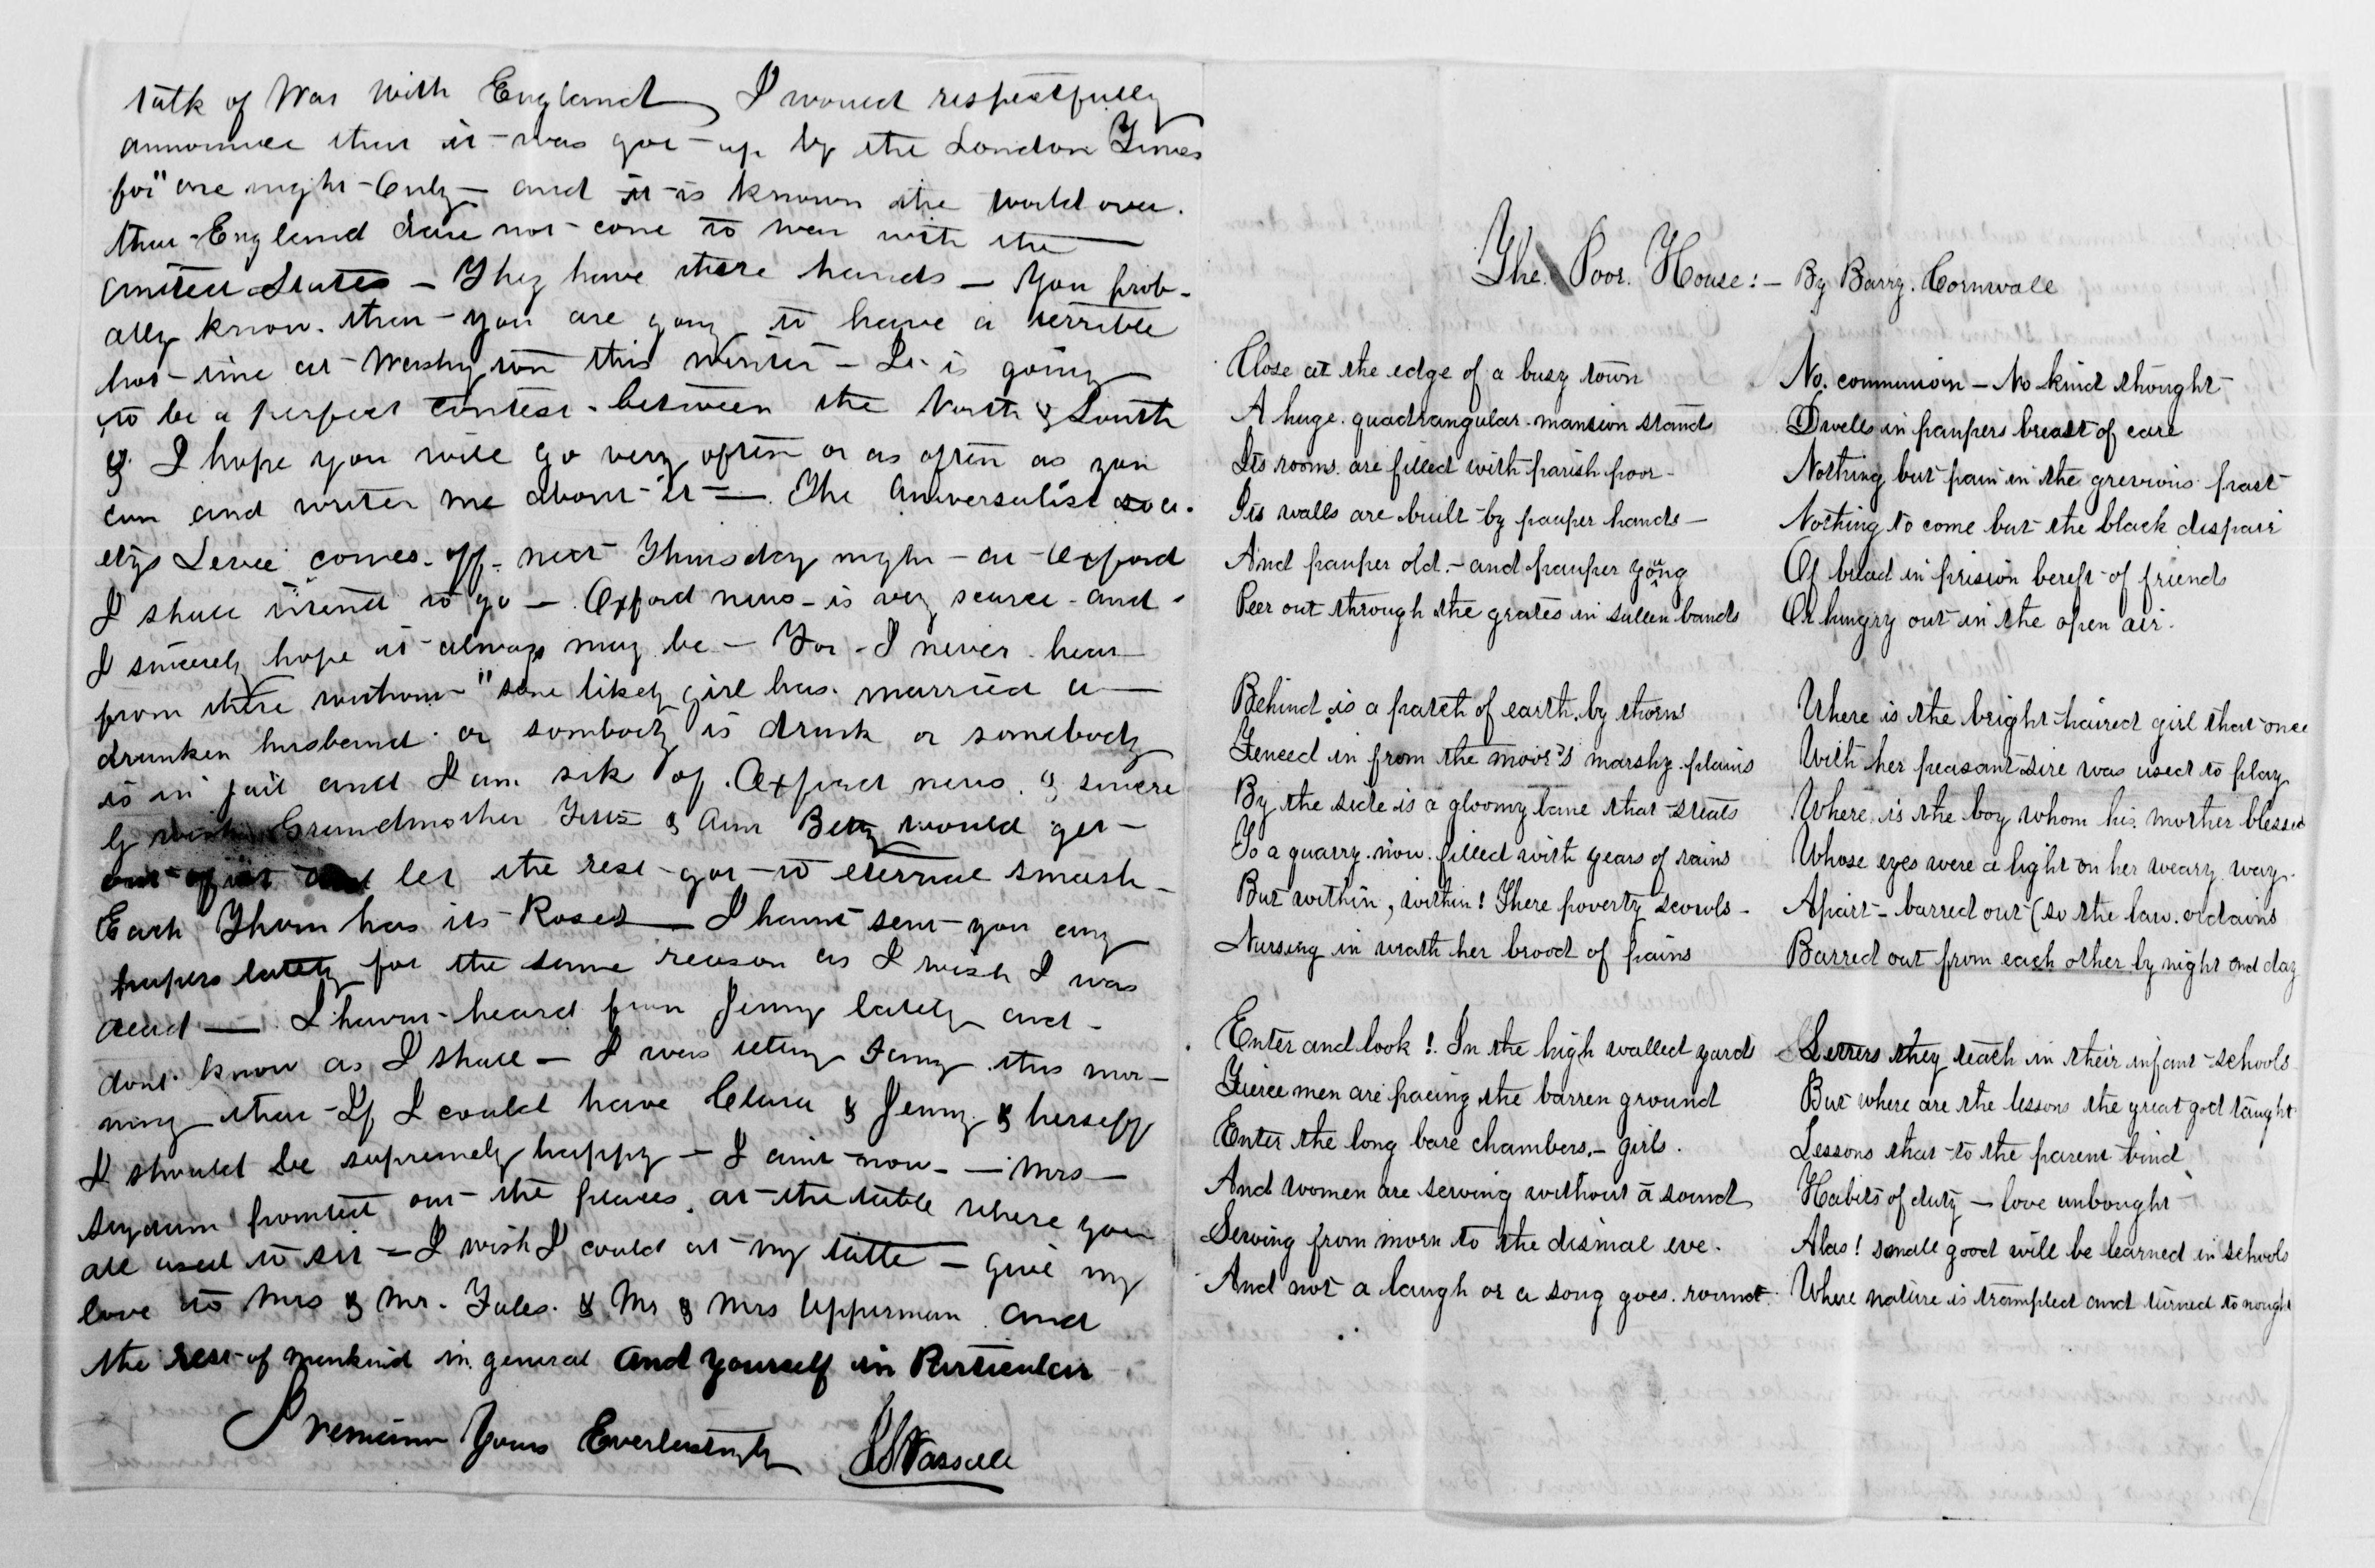 talk of War with England I would respectfully
announce that it was got up by the London Times
for "one night Only and it is known the world over.
that England dare not come to war with the
United States – They have there hands – You prob-
ally know that you are going to have a terrible
hot time at Washington this winter – It is going
to be a perfect contest between the North & South
& I hope you will go very often or as often as you
can and writer me about it — The Universalist soci-
etys Levee comes off next Thursday night – at Oxford
I shall intend to go – Oxford news is very scarce and
I sincerely hope it always may be – For I never hear
from there without "some likely girl has married a
drunken husband or sombody is drunk or somebody
is in jail and I am sik of Oxford news & sincere
ly wish Grandmother & Aunt Betsy would get
out of it and let the rest got to eternal smash –
Each Thorn has its Roses — I haint sent you any
papers lately for the same reason as I wish I was
dead — I havnt heard from Jenny lately and
dont know as I shall – I was this mor-
ning that If I could have Clara & Jenny & herself
I should be supremely happy – I aint now – Mrs
out the places at the table where you
all used to sit – I wish I could at my – give my
love to Mrs & Mr. Fales & Mr & Mrs Upperman and
the rest of mankind in general and yourself in Particular
I remain Yours Everlastingly
The Poor House:– By Barry Cornwall
Close at the edge of a busy town
A huge quadrangular mansion stands
Its rooms are filled with parish poor –
Its walls are built by pauper hands –
And pauper old – and pauper young
Peer out through the grates in sullen bands
Behind is a patch of earth, by thorns
Fenced in from the moor's marshy plains
By the side is a gloomy lane that steals
To a quarry now filled with years of rains
But within, within! There poverty scowls –
Nursing in wrath her brood of pains
Enter and look! In the high walled yards
Fierce men are pacing the barren ground
Enter the long bare chambers – girls
And women are sewing without a sound
Sewing from morn to the dismal eve.
And not a laugh or a song goes round.
No. communion – No kind thought
Dwells in paupers breast of care
Nothing but pain in the grevious past
Nothing to come but the black dispair
Of bread in prision bereft of friends
Or hungry out in the open air.
Where is the bright haired girl that once
With her peasant sire was used to play
Where is the boy whom his mother blessed
Whose eyes were a light on her weary way.
Apart – barred out (so the law ordains
Barred out from each other by night and day
Letters they teach in their infant schools
But where are the lessons the great god taught
Lessons that to the parent bind
Habits of duty – love unbought
Alas! small good will be learned in schools
Where nature is trampled and turned to nought